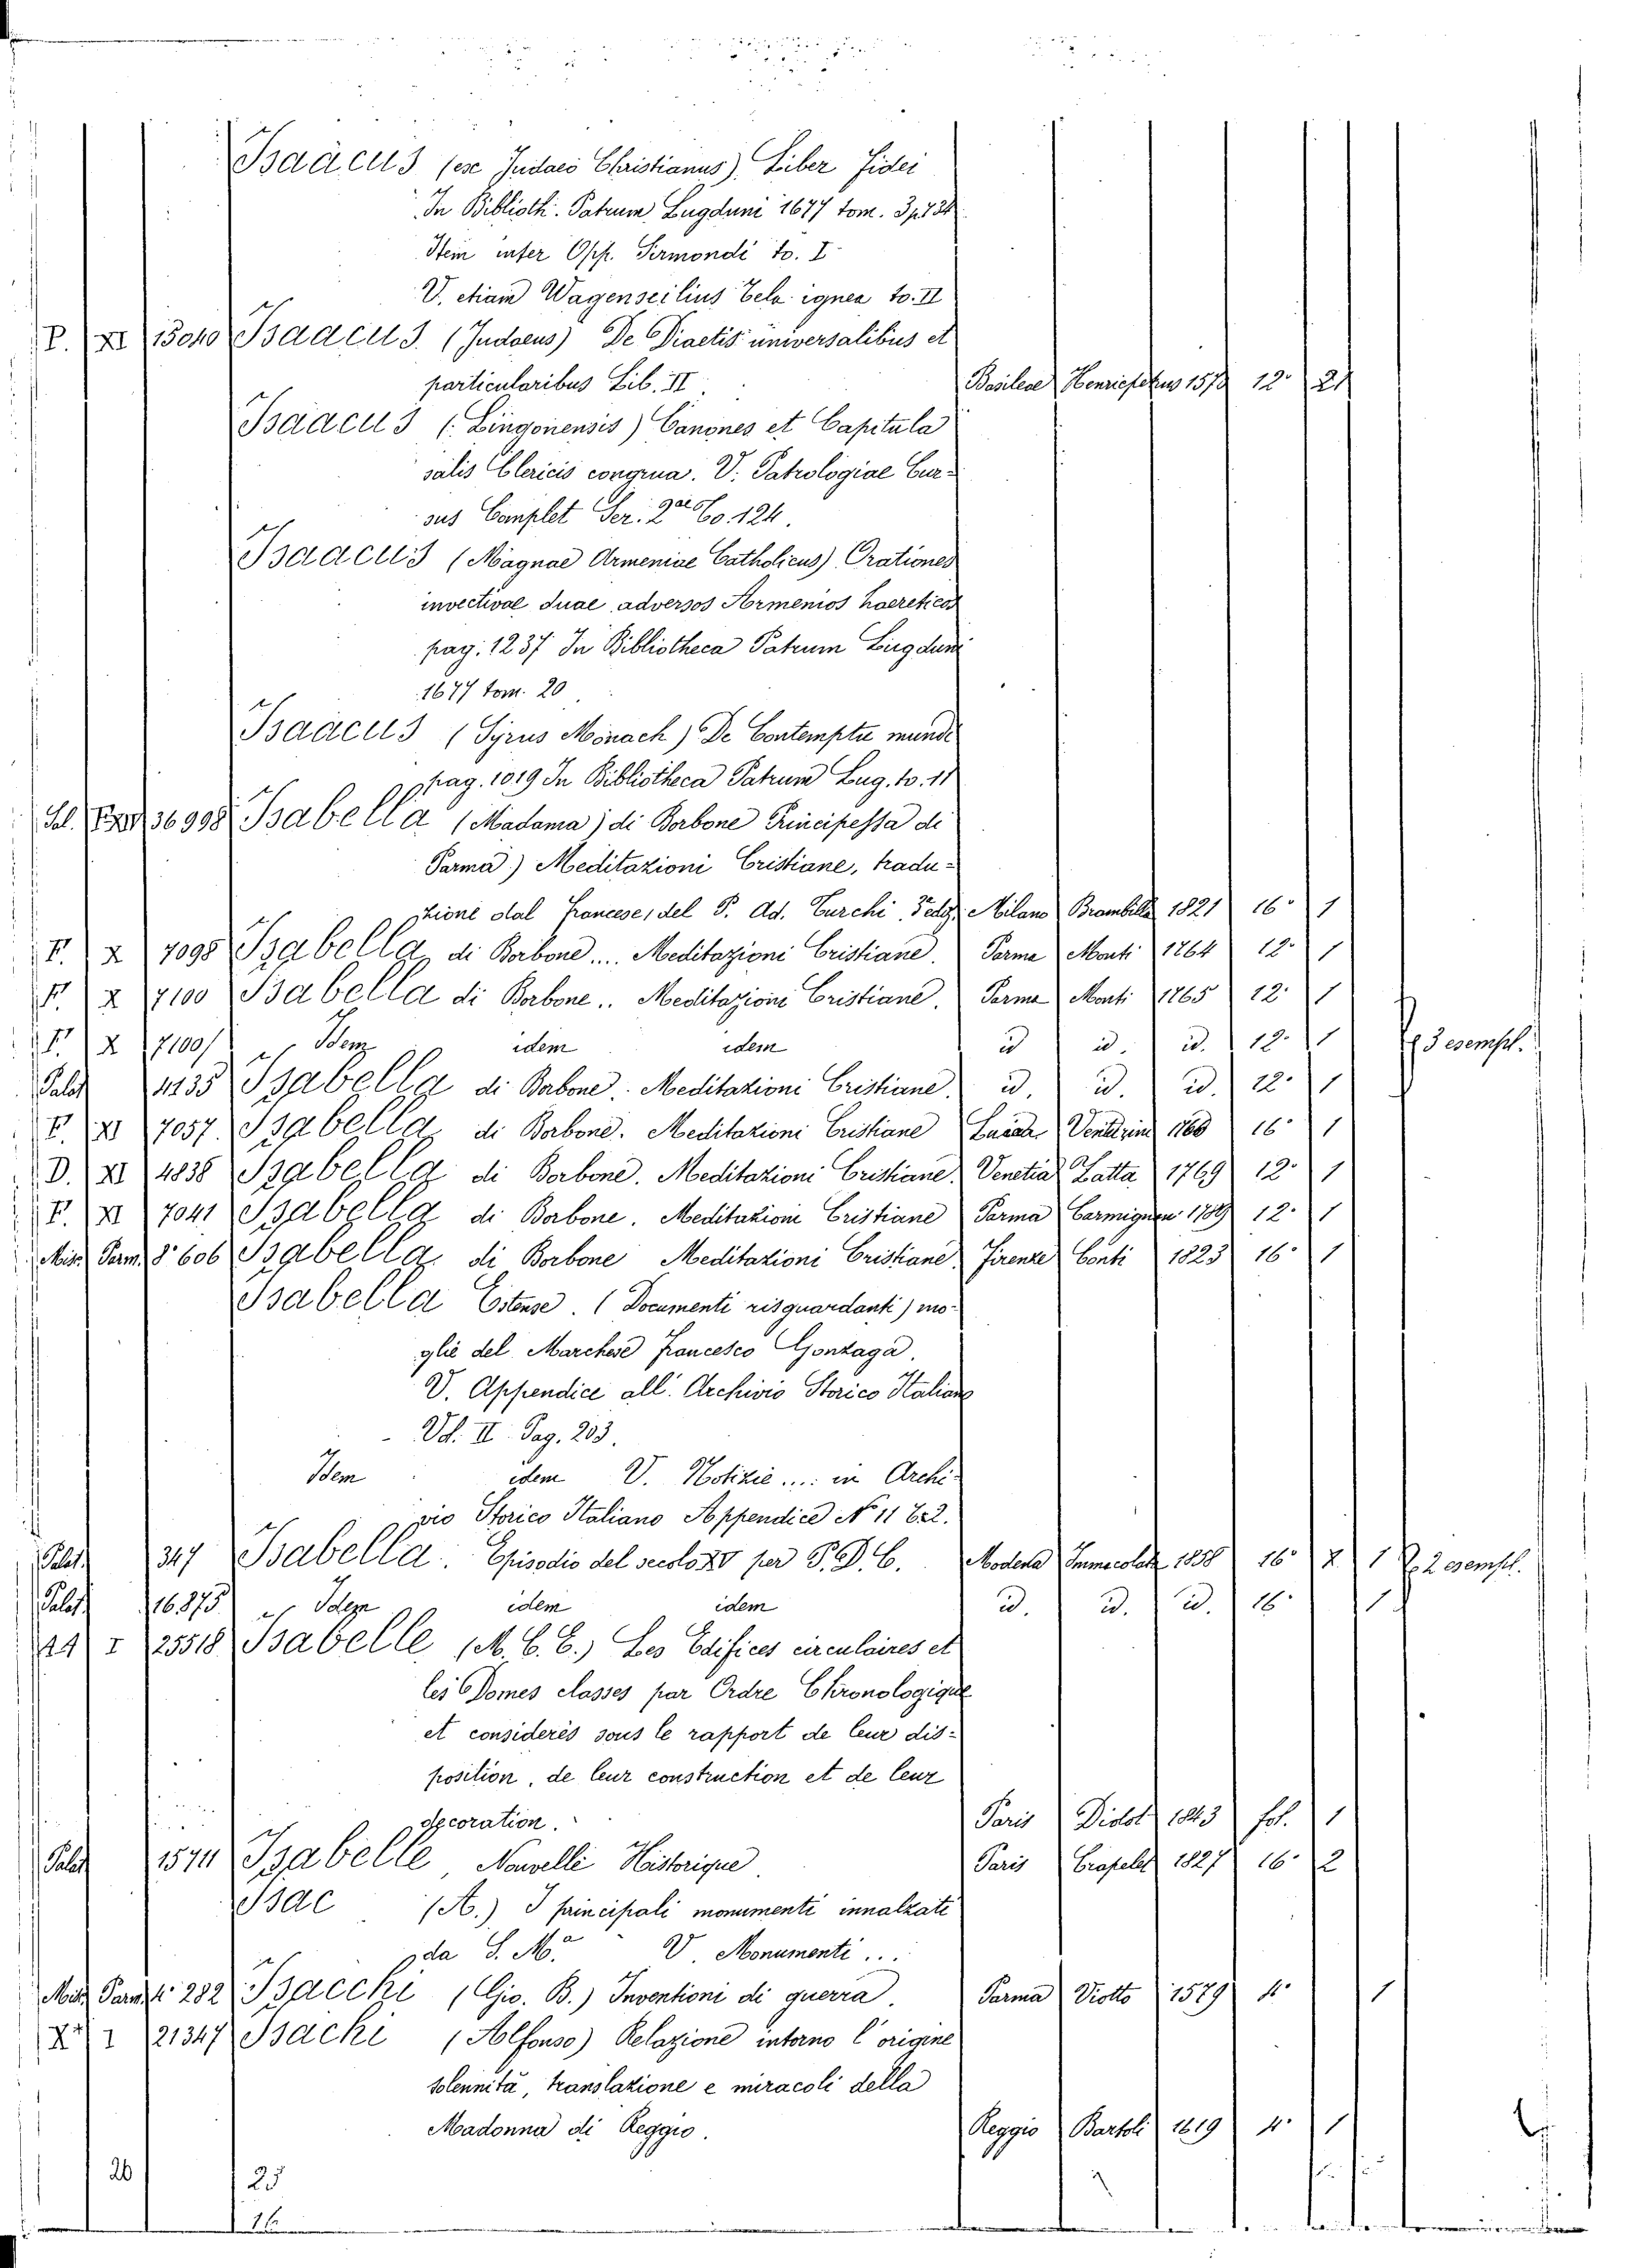 Isaacus (ese Judaeo Christianus) Liber Fidei
In Biblioth. Patrum Lugduni 1677 tom. 3 p. 734
Item inter Opp. Sirmondi to. I
V. etiam Wagenseilius Tela ignea to. II
P. XI 15040 Isaacus. (Judaeus) De Diaetis universalibus et
particularibus Lib. II. Basileae Henricpetrus 1570 12° 21
Isaacus (Lingonensis) Canones et Capitula
salis Clericis congrua. V. Patrologiae Cur-
sus Complet Ser. 2ae to. 124.
Isaacus (Magnae Armeniae Catholicus) Orationes
invectivae duae adversos Armenios haereticos
pag. 1237 In Bibliotheca Patrum Lugduni
1677 tom. 20
Isaacus (Syrus Monach) De Contemptu mundi
pag. 1019 In Bibliotheca Patrum Lug. to. 11
36998 Isabella (Madama) di Borbone Principessa di
Parma) Meditazioni Cristiane, tradu-
zione dal Francese, del P. Ad. Turchi. Milano Brambilla 1821 16° 1
F. X 7098 Isabella di Borbone.... Meditazioni Cristiane. Parma Monti 1764 12° 1
F. X 7100 Isabella di Borbone.. Meditazioni Cristiane. Parma Monti 1765 12° 1
F. X 7100/ Idem idem idem id id. id. 12° 1 3 esempl.
Palat 4135 Isabella di Borbone. Meditazioni Cristiane. id. id. id. 12° 1
F. XI 7057 Isabella di Borbone. Meditazioni Cristiane Lucca 16° 1
D. XI 4838 Isabella di Borbone. Meditazioni Cristiane. Venetia Zatta 1769 12° 1
F. XI 7041 Isabella di Borbone. Meditazioni Cristiane Parma Carmignan 1789 12° 1
Misc. Parm. 8° 606 Isabella di Borbone Meditazioni Cristiane. Firenze Conti 1823 16° 1
Isabella Estense. (Documenti risguardanti) mo-
glie del Marchese Francesco Gonzaga.
V. Appendice all'. Archivio Storico Italiano
Vol. II. Pag. 203.
Idem idem V. Notizie.... in Archi-
vio Storico Italiano Appendice N° 11
Palat. 347 Isabella. Episodio del secolo XV per P. D. C. Modena Immacolata 1858 16° 1 2 esempl.
Palat. 16,875 Idem idem idem id. id. id. 16° 1
I 25518 Isabelle (M. C. E.) Les Edifices circulaires et
les Domes classes par Ordre Chronologique
et considerés sous le rapport de leur dis-
position, de leur construction et de leur
decoration. Paris Didot 1843 fol. 1
Palat 1574 Isabelle, Nouvelle Historique. Paris Crapelet 1827 16° 2
Isac (A.) I principali monumenti innalzati
da S. M.a V. Monumenti...
Misc. Parm. 4° 282 Isacchi (Gio. B.) Inventioni di guerra. Parma Viotto 1579 4° 1
21347 Isachi (Alfonso) Relazione intorno l'origine
solennità, translazione e miracoli della
Madonna di Reggio. Reggio Bartoli 1619 4° 1
26 25